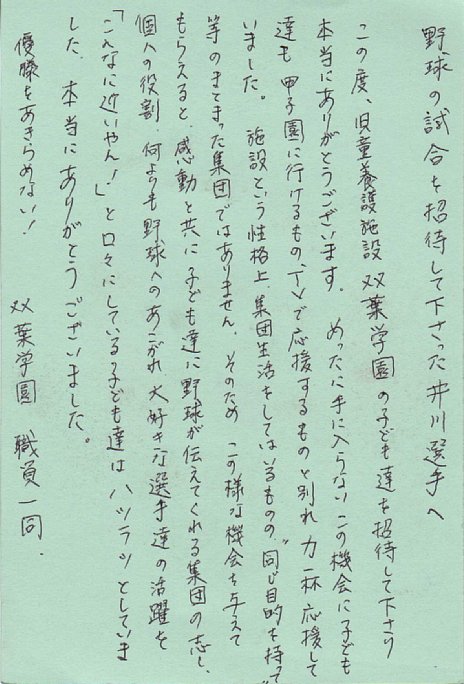 野球の試合を招待して下さった井川選手へ
この度、児童養護施設 双葉学園の子ども達を招待して下さり
本当にありがとうございます。 めったに手に入らないこの機会に子ども
達も 甲子園に行けるもの、TVで応援するものと別れ 力一杯応援して
いました。 施設という性格上、集団生活をしてはいるものの、"同じ目的を持って"
等のまとまった集団ではありません。そのため この様な機会を与えて
もらえると 感動と共に子ども達に野球が伝えてくれる集団の志し、
個人の役割、何よりも野球へのあこがれ 大好きな選手達の活躍を
「こんなに近いやん!」と口々にしている子ども達は ハツラツとしていま
した。本当にありがとうございました。
優勝をあきらめない!
双葉学園 職員一同.